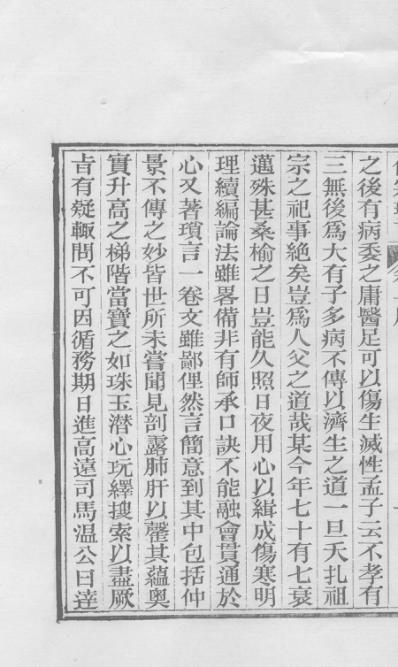 之後有病委之庸醫足可以傷生滅性孟子云不孝有
三無後爲大有子多病不傳以濟生之道一旦夭扎祖
宗之祀事絶矣豈爲人父之道哉某今年七十有七衰
邁殊甚桑榆之日豈能久照日夜用心以緝成傷寒明
理續編論法雖畧備非有師承口訣不能融會貫通於
心又著瑣言一卷文雖鄙俚然言簡意到其中包括仲
景不傳之妙皆世所未嘗聞見剖露肺肝以罄其蘊奥
實升高之梯階當寶之如珠玉潛心玩繹搜索以盡厥
旨有疑輙問不可因循務期日進高遠司馬温公曰達